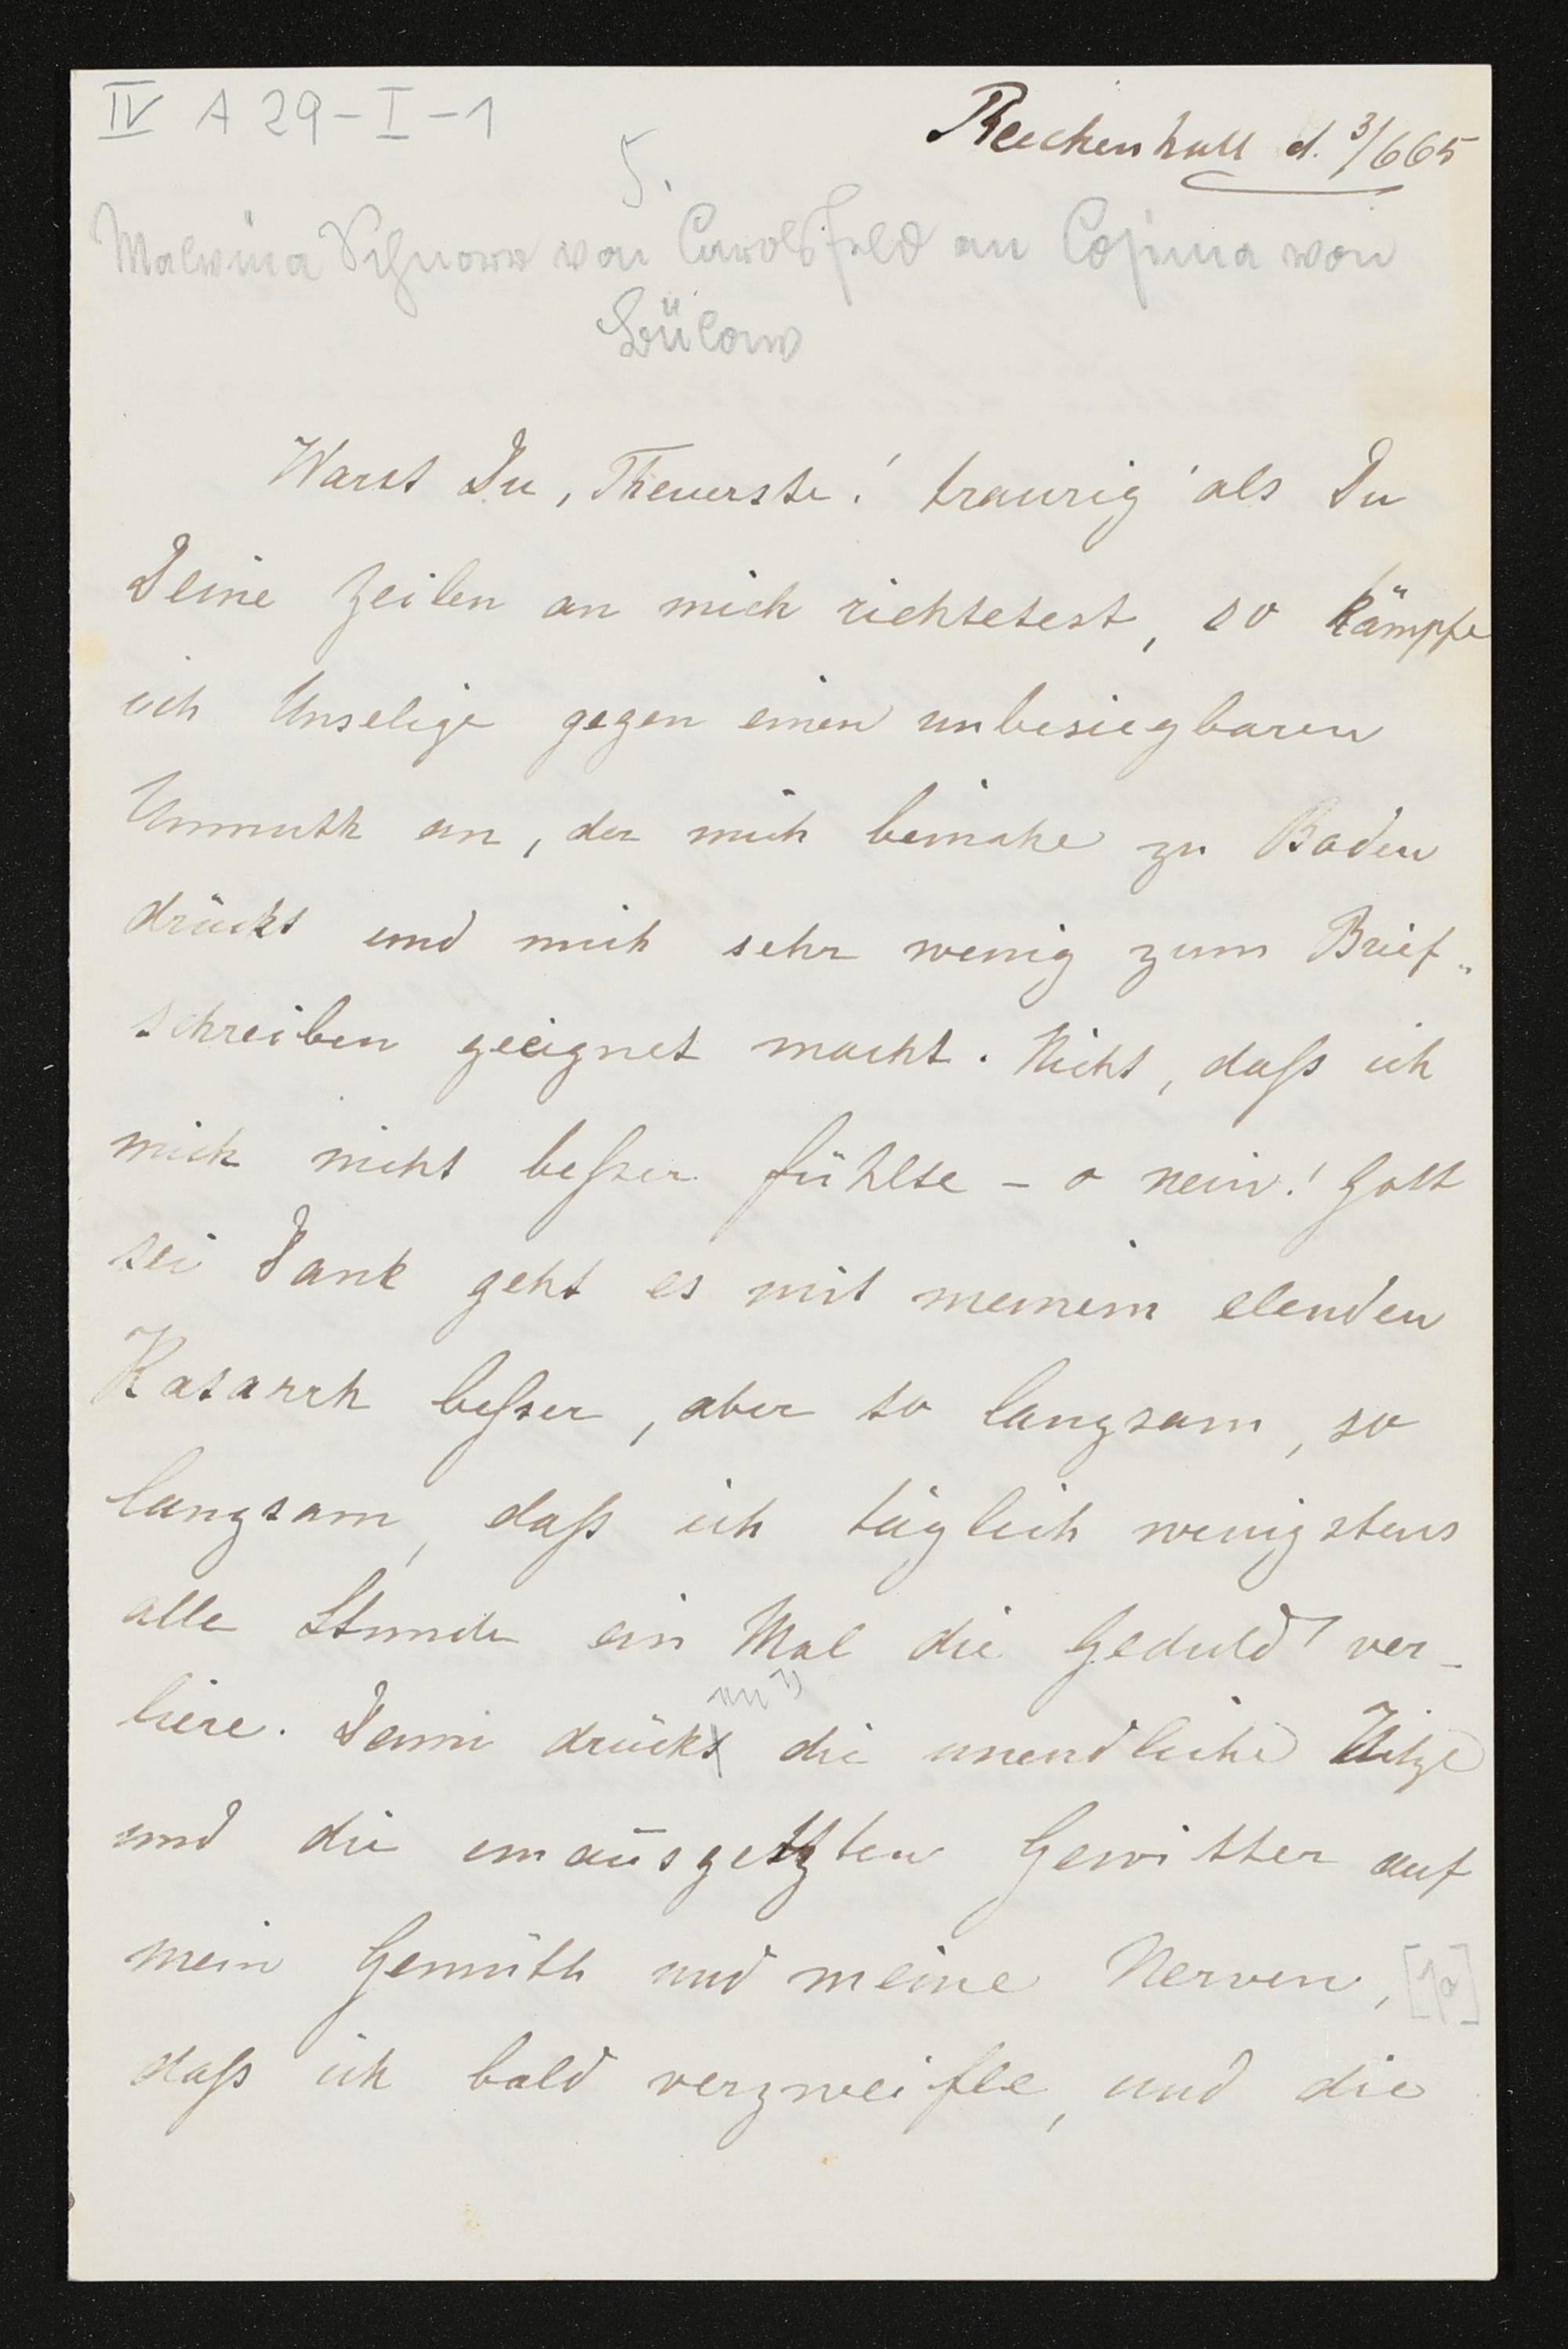 IV A 29-I-1
Reichenhall d. 3/665
5.
Malwina Schnorr von Carolsfeld an Cosima von
Bülow
Warst Du, Theuerste! traurig als Du
Deine Zeilen an mich richtetest, so kämpfe
ich Unselige gegen einen unbesiegbaren
Unmuth an, der mich beinahe zu Boden
drückt und mich sehr wenig zum Brief-
schreiben geeignet macht. Nicht, daß ich
mich nicht beßer fühlte - o nein! Gott
sei Dank geht es mit meinem elenden
Katarrh beßer, aber so langsam, so
langsam, daß ich täglich wenigstens
alle Stunde ein Mal die Geduld ver-
liere. Dann drückt die unendliche Hitze
und die unausgesetzten Gewitter auf
mein Gemüth und meine Nerven, [1a]
daß ich bald verzweifle, und die